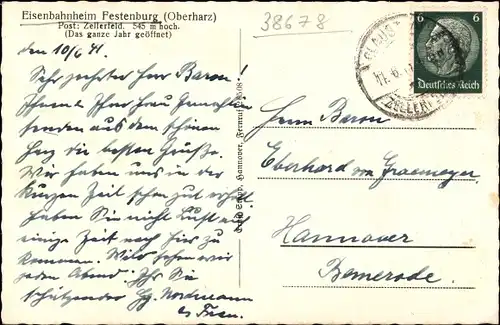 Eisenbahnheim Festenburg (Oberharz)
Post: Zellerfeld. 545 m hoch.
(Das ganze Jahr geöffnet)
38678
den 10/6 41.
Sehr geehrter Herr Baron!
Ihrer Frau Gemahlin
senden aus dem schönen
Harz die besten Grüße.
Wir haben uns in der
kurzen Zeit schon gut erholt
haben Sie nicht Lust auf
einige Zeit nach hier zu
kommen. Wild sehen wir
jeden Abend. Ihr Sie
Nordmann
u. Frau.
Hannover, Fernruf
6
6
Deutsches Reich
ZELLERF
Herrn Baron
Eberhard von
Hannover
Bemerode.